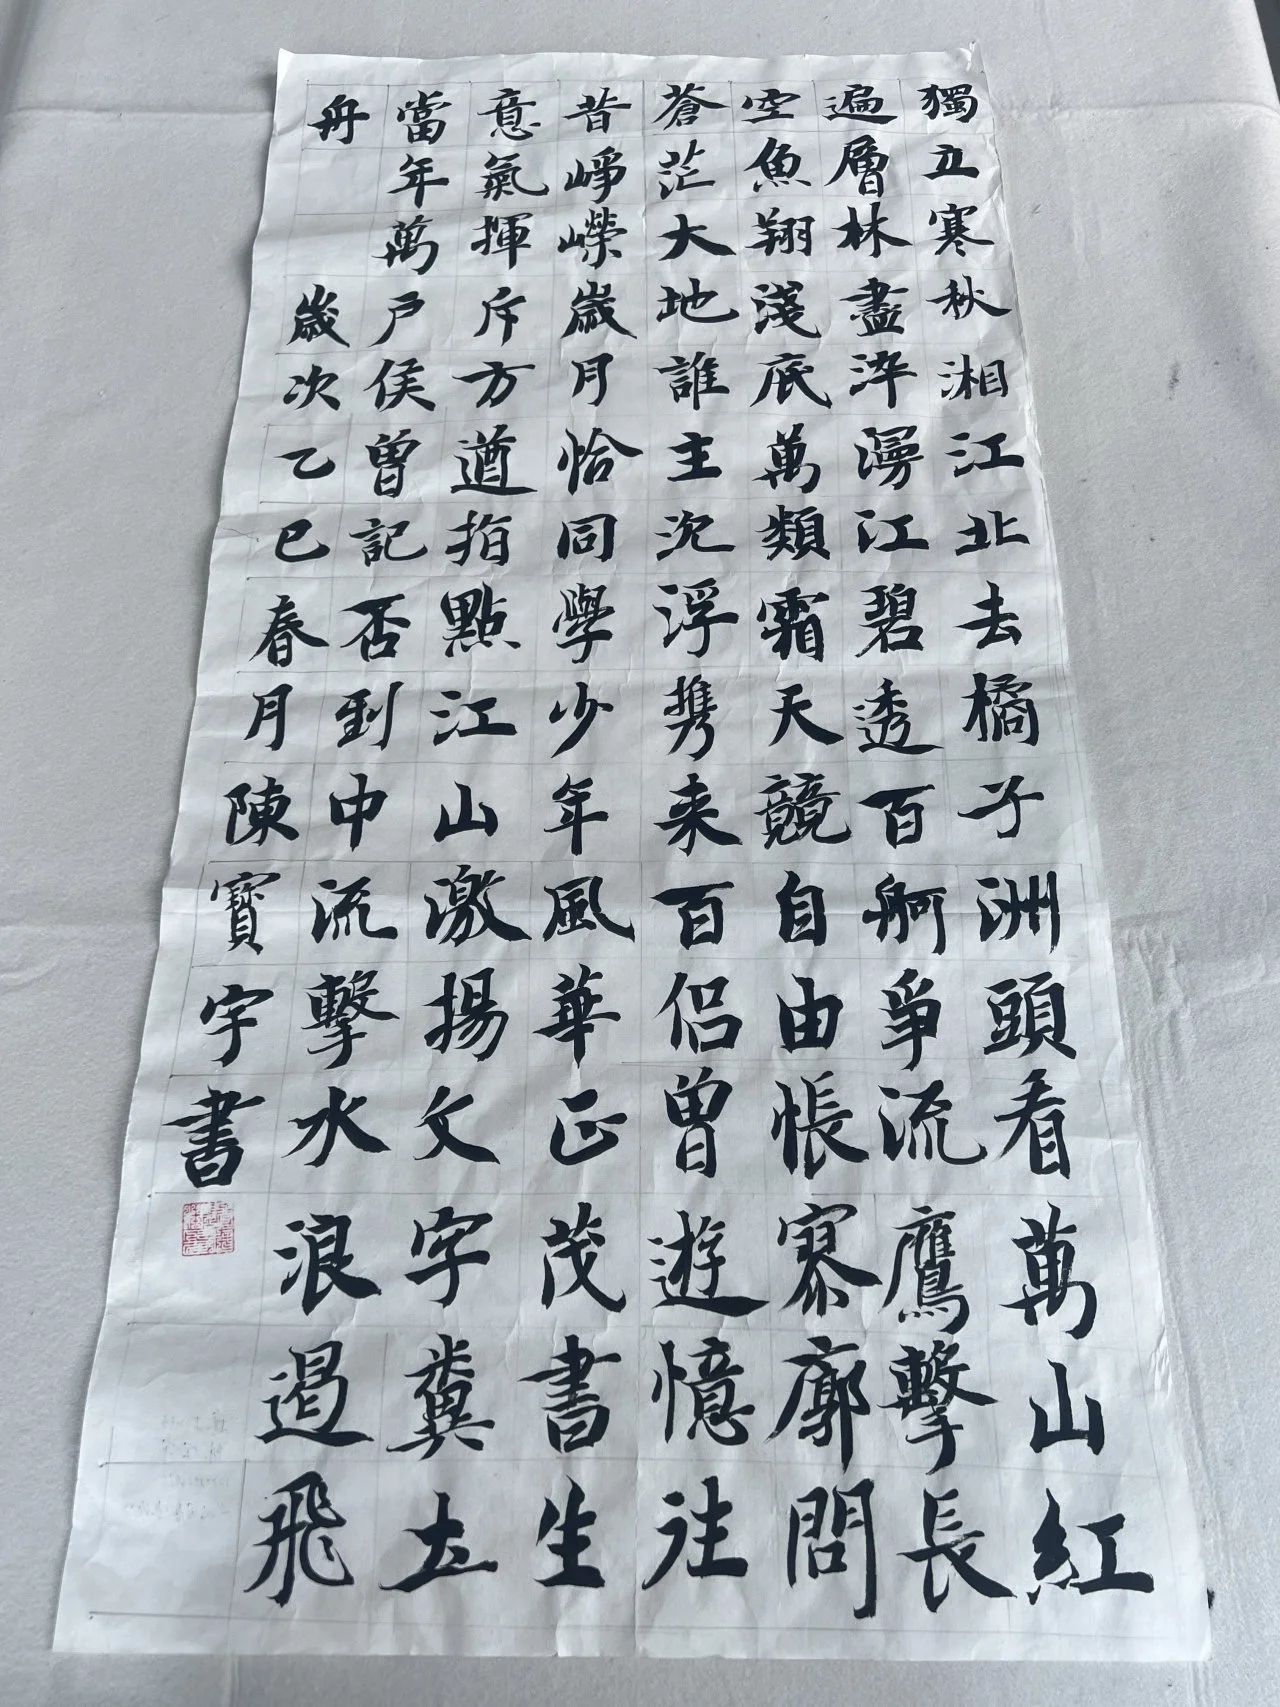 獨立寒秋湘江北去橘子洲頭看萬山紅
遍層林盡染漫江碧透百舸爭流鷹擊長
空魚翔淺底萬類霜天競自由悵寥廓問
蒼茫大地誰主沉浮携来百侣曾遊憶往
昔崢嶸歲月恰同學少年風華正茂書生
意氣揮斥方遒指點江山激揚文字糞土
當年萬戶侯曾記否到中流擊水浪遏飛
舟
歲次乙巳春月陳寶宇書